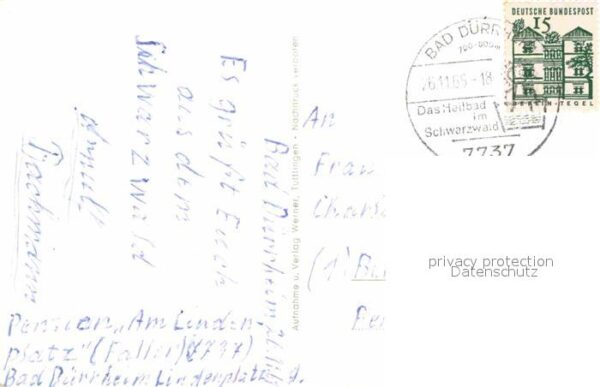 Bad Dürrheim
Es grüßt Euch
aus dem
Schwarzwald
Bachmann
Pension "Am Linden-
platz" (Faller) (7737)
Bad Dürrheim Lindenplatz
Aufnahme u. Verlag Werner, Tuttlingen - Nachdruck verboten
An
Frau
(1)
DEUTSCHE BUNDESPOST
15
BERLIN-TEGEL
BAD DÜRRH
700-800m
26.11.65-18
Das Heilbad
im
Schwarzwald
7737
privacy protection
Datenschutz